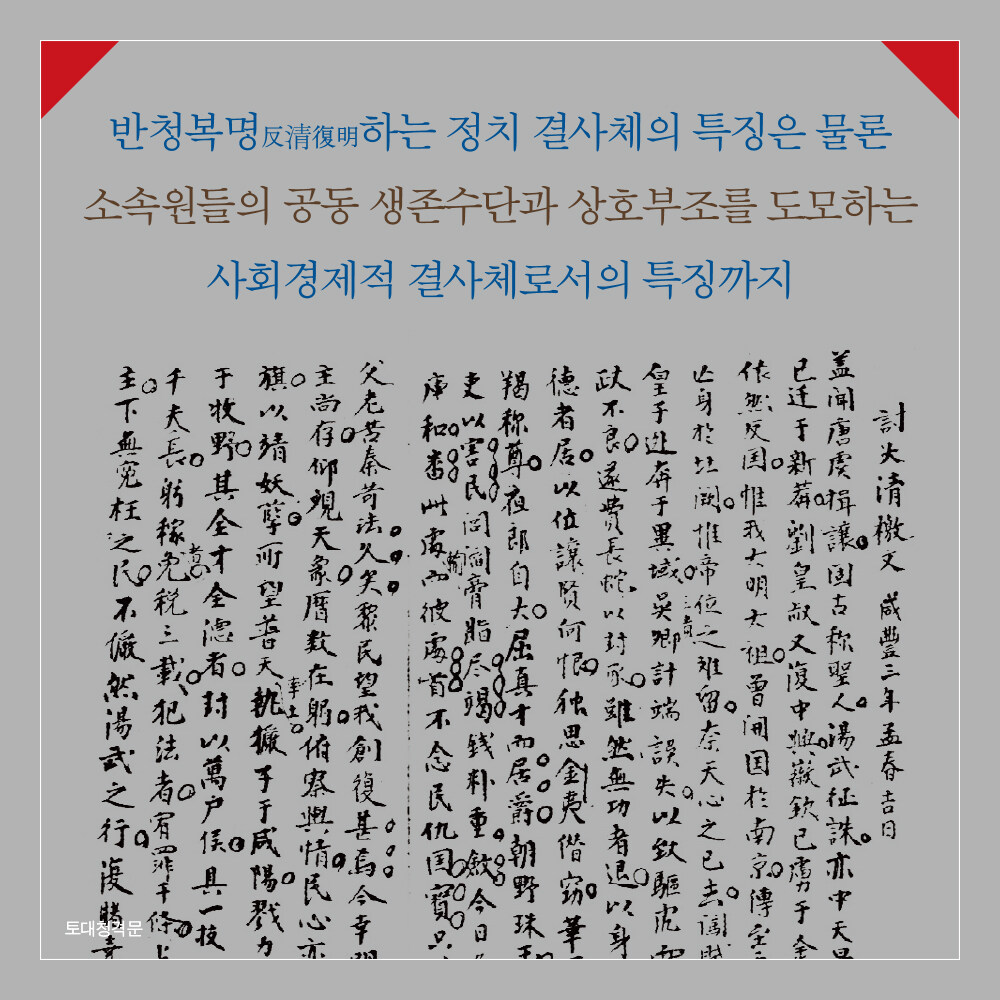 반청복명反清復明하는 정치 결사체의 특징은 물론
소속원들의 공동 생존수단과 상호부조를 도모하는
사회경제적 결사체로서의 특징까지
討大清檄文 咸豊三年孟春吉日
蓋聞唐虞揖讓国古称聖人湯武征誅亦中天
已迁于新莽劉皇叔又復中興嶶欽已虏于金
依然反国惟我大明太祖曽開国於南京傳至
亡身於 惟帝位之难留奈天心之已去闯
皇子逃奔于異域吳 計端誤失以致驅虎
不良遂費長蛇以封豕雖然無功者退以身
德者居以位讓賢何恨独思金夷僭窃華
羯称尊夜郎自大屈真才而居爵朝野珠玉
吏以害民闾閻膏脂尽竭錢朴重斂今日
庫和番此處輸而彼處 不念民仇国寳只
父老苦秦苛法久矣黎民望我創復甚焉今幸
主尚存仰观天象曆数在躬俯察興情民心亦
旗以靖妖孽所望普天率土執 于咸陽戮力
于牧野其全才全德者封以萬户侯具一技
千夫長躬稼免税三載犯法者宥罪千條上
主下無宛枉之民不儼然湯武之行復
토대청격문